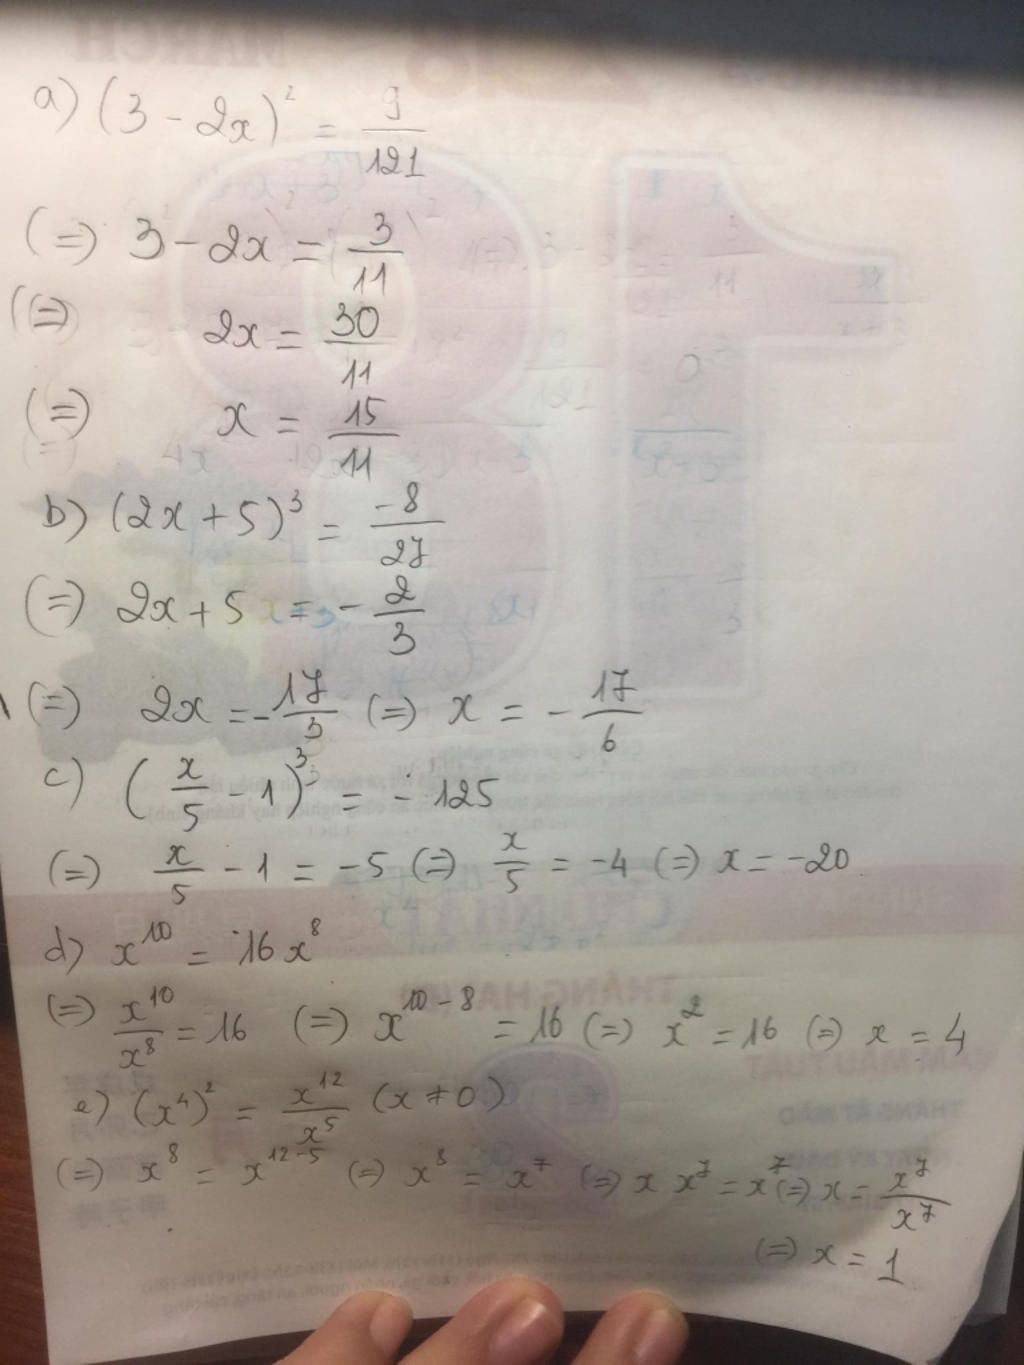 a) (3 - 2x)² = 9/121
(=) 3 - 2x = 3/11
(=) 2x = 30/11
(=) x = 15/11
b) (2x + 5)³ = -8/27
(=) 2x + 5 = - 2/3
(=) 2x = - 17/3 (=) x = - 17/6
c) (x/5 - 1)³ = - 125
(=) x/5 - 1 = -5 (=) x/5 = -4 (=) x = -20
d) x¹⁰ = 16x⁸
(=) x¹⁰/x⁸ = 16 (=) x¹⁰⁻⁸ = 16 (=) x² = 16 (=) x = 4
e) (x⁴)² = x¹²/x⁵ (x ≠ 0)
(=) x⁸ = x¹²⁻⁵ (=) x⁸ = x⁷ (=) x x⁷ = x⁷ (=) x = x⁷/x⁷
(=) x = 1